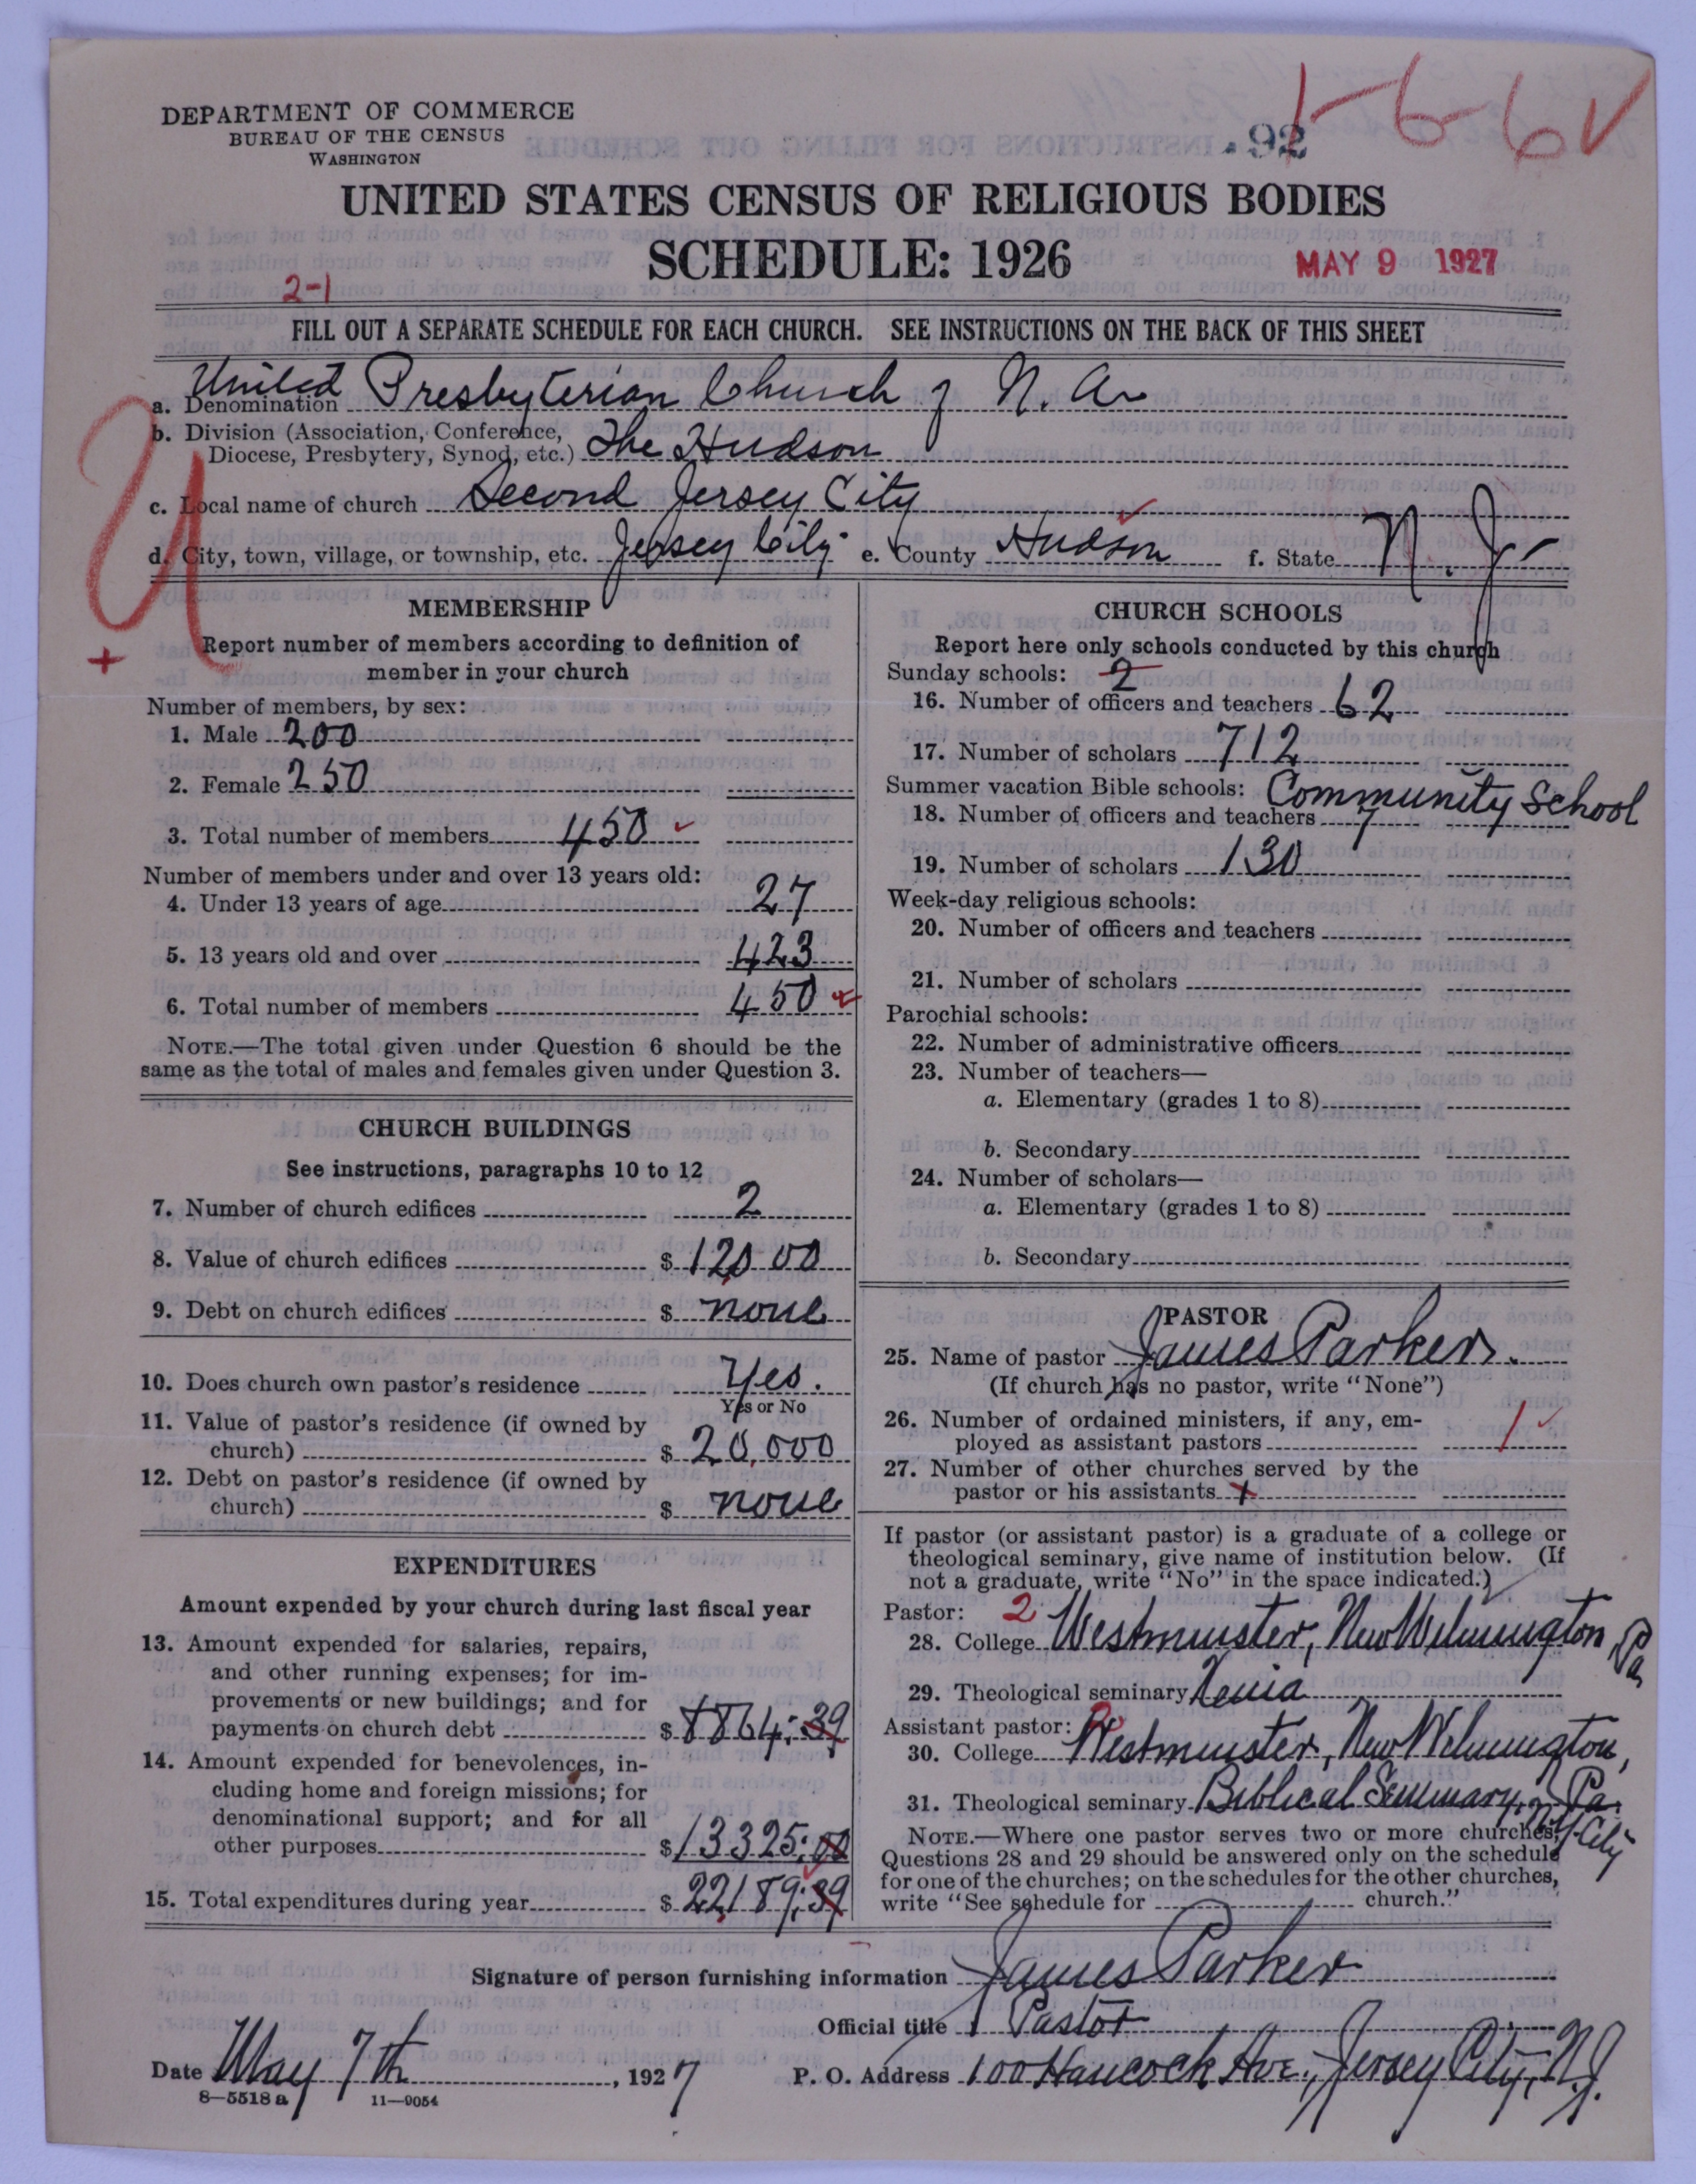 DEPARTMENT OF COMMERCE
BUREAU OF THE CENSUS
WASHINGTON
92
1-6-6 ✓
UNITED STATES CENSUS OF RELIGIOUS BODIES
SCHEDULE: 1926
MAY 9 1927
2-1
FILL OUT A SEPARATE SCHEDULE FOR EACH CHURCH. SEE INSTRUCTIONS ON THE BACK OF THIS SHEET
U
a. Denomination United Presbyterian Church of N. A.
b. Division (Association, Conference, Diocese, Presbytery, Synod, etc.) The Hudson
c. Local name of church Second Jersey City
d. City, town, village, or township, etc. Jersey City e. County Hudson f. State N. J.
+
MEMBERSHIP
Report number of members according to definition of
member in your church
Number of members, by sex:
1. Male 200
2. Female 250
3. Total number of members 450
Number of members under and over 13 years old:
4. Under 13 years of age 27
5. 13 years old and over 423
6. Total number of members 450
NOTE.—The total given under Question 6 should be the
same as the total of males and females given under Question 3.
CHURCH BUILDINGS
See instructions, paragraphs 10 to 12
7. Number of church edifices 2
8. Value of church edifices $ 120 00
9. Debt on church edifices $ none
10. Does church own pastor's residence Yes.
Yes or No
11. Value of pastor's residence (if owned by
church) $ 20,000
12. Debt on pastor's residence (if owned by
church) $ none
EXPENDITURES
Amount expended by your church during last fiscal year
13. Amount expended for salaries, repairs,
and other running expenses; for im-
provements or new buildings; and for
payments on church debt $ 8864:39
14. Amount expended for benevolences, in-
cluding home and foreign missions; for
denominational support; and for all
other purposes $ 13325:00
15. Total expenditures during year $ 22189:39
CHURCH SCHOOLS
Report here only schools conducted by this church
Sunday schools: 2
16. Number of officers and teachers 62
17. Number of scholars 712
Summer vacation Bible schools: Community School
18. Number of officers and teachers 7
19. Number of scholars 130
Week-day religious schools:
20. Number of officers and teachers
21. Number of scholars
Parochial schools:
22. Number of administrative officers
23. Number of teachers—
a. Elementary (grades 1 to 8)
b. Secondary
24. Number of scholars—
a. Elementary (grades 1 to 8)
b. Secondary
PASTOR
25. Name of pastor James Parker.
(If church has no pastor, write "None")
26. Number of ordained ministers, if any, em-
ployed as assistant pastors 1
27. Number of other churches served by the
pastor or his assistants x
If pastor (or assistant pastor) is a graduate of a college or
theological seminary, give name of institution below. (If
not a graduate, write "No" in the space indicated.)
Pastor: 2
28. College Westminster, New Wilmington Pa
29. Theological seminary Xenia
Assistant pastor:
30. College Westminster, New Wilmington,
Pa.
31. Theological seminary Biblical Seminary, N.Y. City
NOTE.—Where one pastor serves two or more churches,
Questions 28 and 29 should be answered only on the schedule
for one of the churches; on the schedules for the other churches,
write "See schedule for church."
Signature of person furnishing information James Parker
Official title Pastor
Date May 7th, 1927 P. O. Address 100 Hancock Ave., Jersey City, N.J.
8—5518 a 11—9054